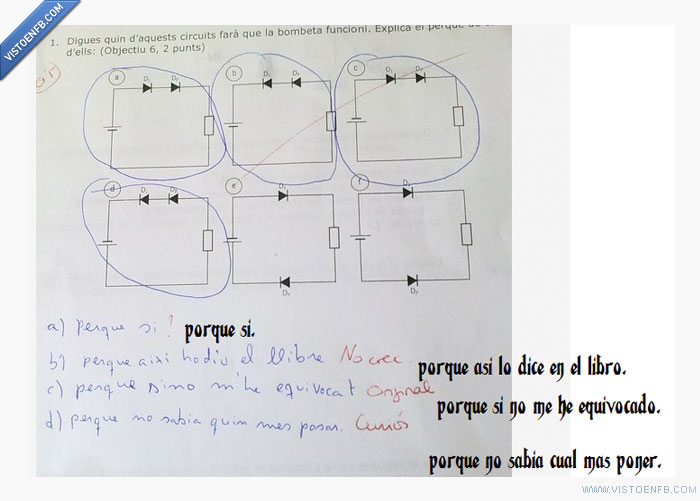 VISTOENFB.COM
1. Digues quin d'aquests circuits farà que la bombeta funcioni. Explica el perquè de
d'ells: (Objectiu 6, 2 punts)
a D₁ D₂
b D₁ D₂
c D₁ D₂
d D₁ D₂
e D₁ D₂
f D₁ D₂
a) perque si ! porque si.
b) perque aixi ho diu el llibre No crec porque asi lo dice en el libro.
c) perque sino m'he equivocat Original porque si no me he equivocado.
d) perque no sabia quin mes posar. Curiós porque no sabia cual mas poner.
WWW.VISTOENFB.COM